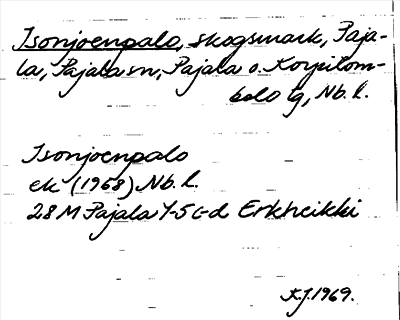 Isonjoenpalo, skogsmark, Paja-
la, Pajala sn, Pajala o. Korpilom-
bolo tg, Nb. l.
Isonjoenpalo
ek (1968) Nb. l.
28 M Pajala 4-5 c-d Erkheikki
K.J. 1969.